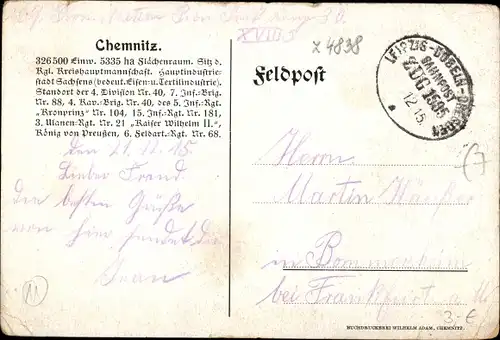 XVIII
x 4838
Chemnitz.
326500 Einw. 5335 ha Flächenraum. Sitz d.
Kgl. Kreishauptmannschaft. Hauptindustrie-
stadt Sachsens (bedeut. Eisen- u. Textilindustrie).
Standort der 4. Division Nr. 40, 7. Inf.-Brig.
Nr. 88, 4. Kav.-Brig. Nr. 40, des 5. Inf.-Rgt.
„Kronprinz" Nr. 104, 15. Inf.-Rgt. Nr. 181,
3. Ulanen-Rgt. Nr. 21 „Kaiser Wilhelm II.",
König von Preußen, 6. Feldart.-Rgt. Nr. 68.
Feldpost
LEIPZIG-DÖBELN-DRESDEN
BAHNPOST
ZUG 1595
12 15
den 21.12.15.
Lieber Freund
die besten Grüße
von hier sendet dir
Herrn
Martin
in Bommersheim
bei Frankfurt a M
3.- €
BUCHDRUCKEREI WILHELM ADAM, CHEMNITZ.